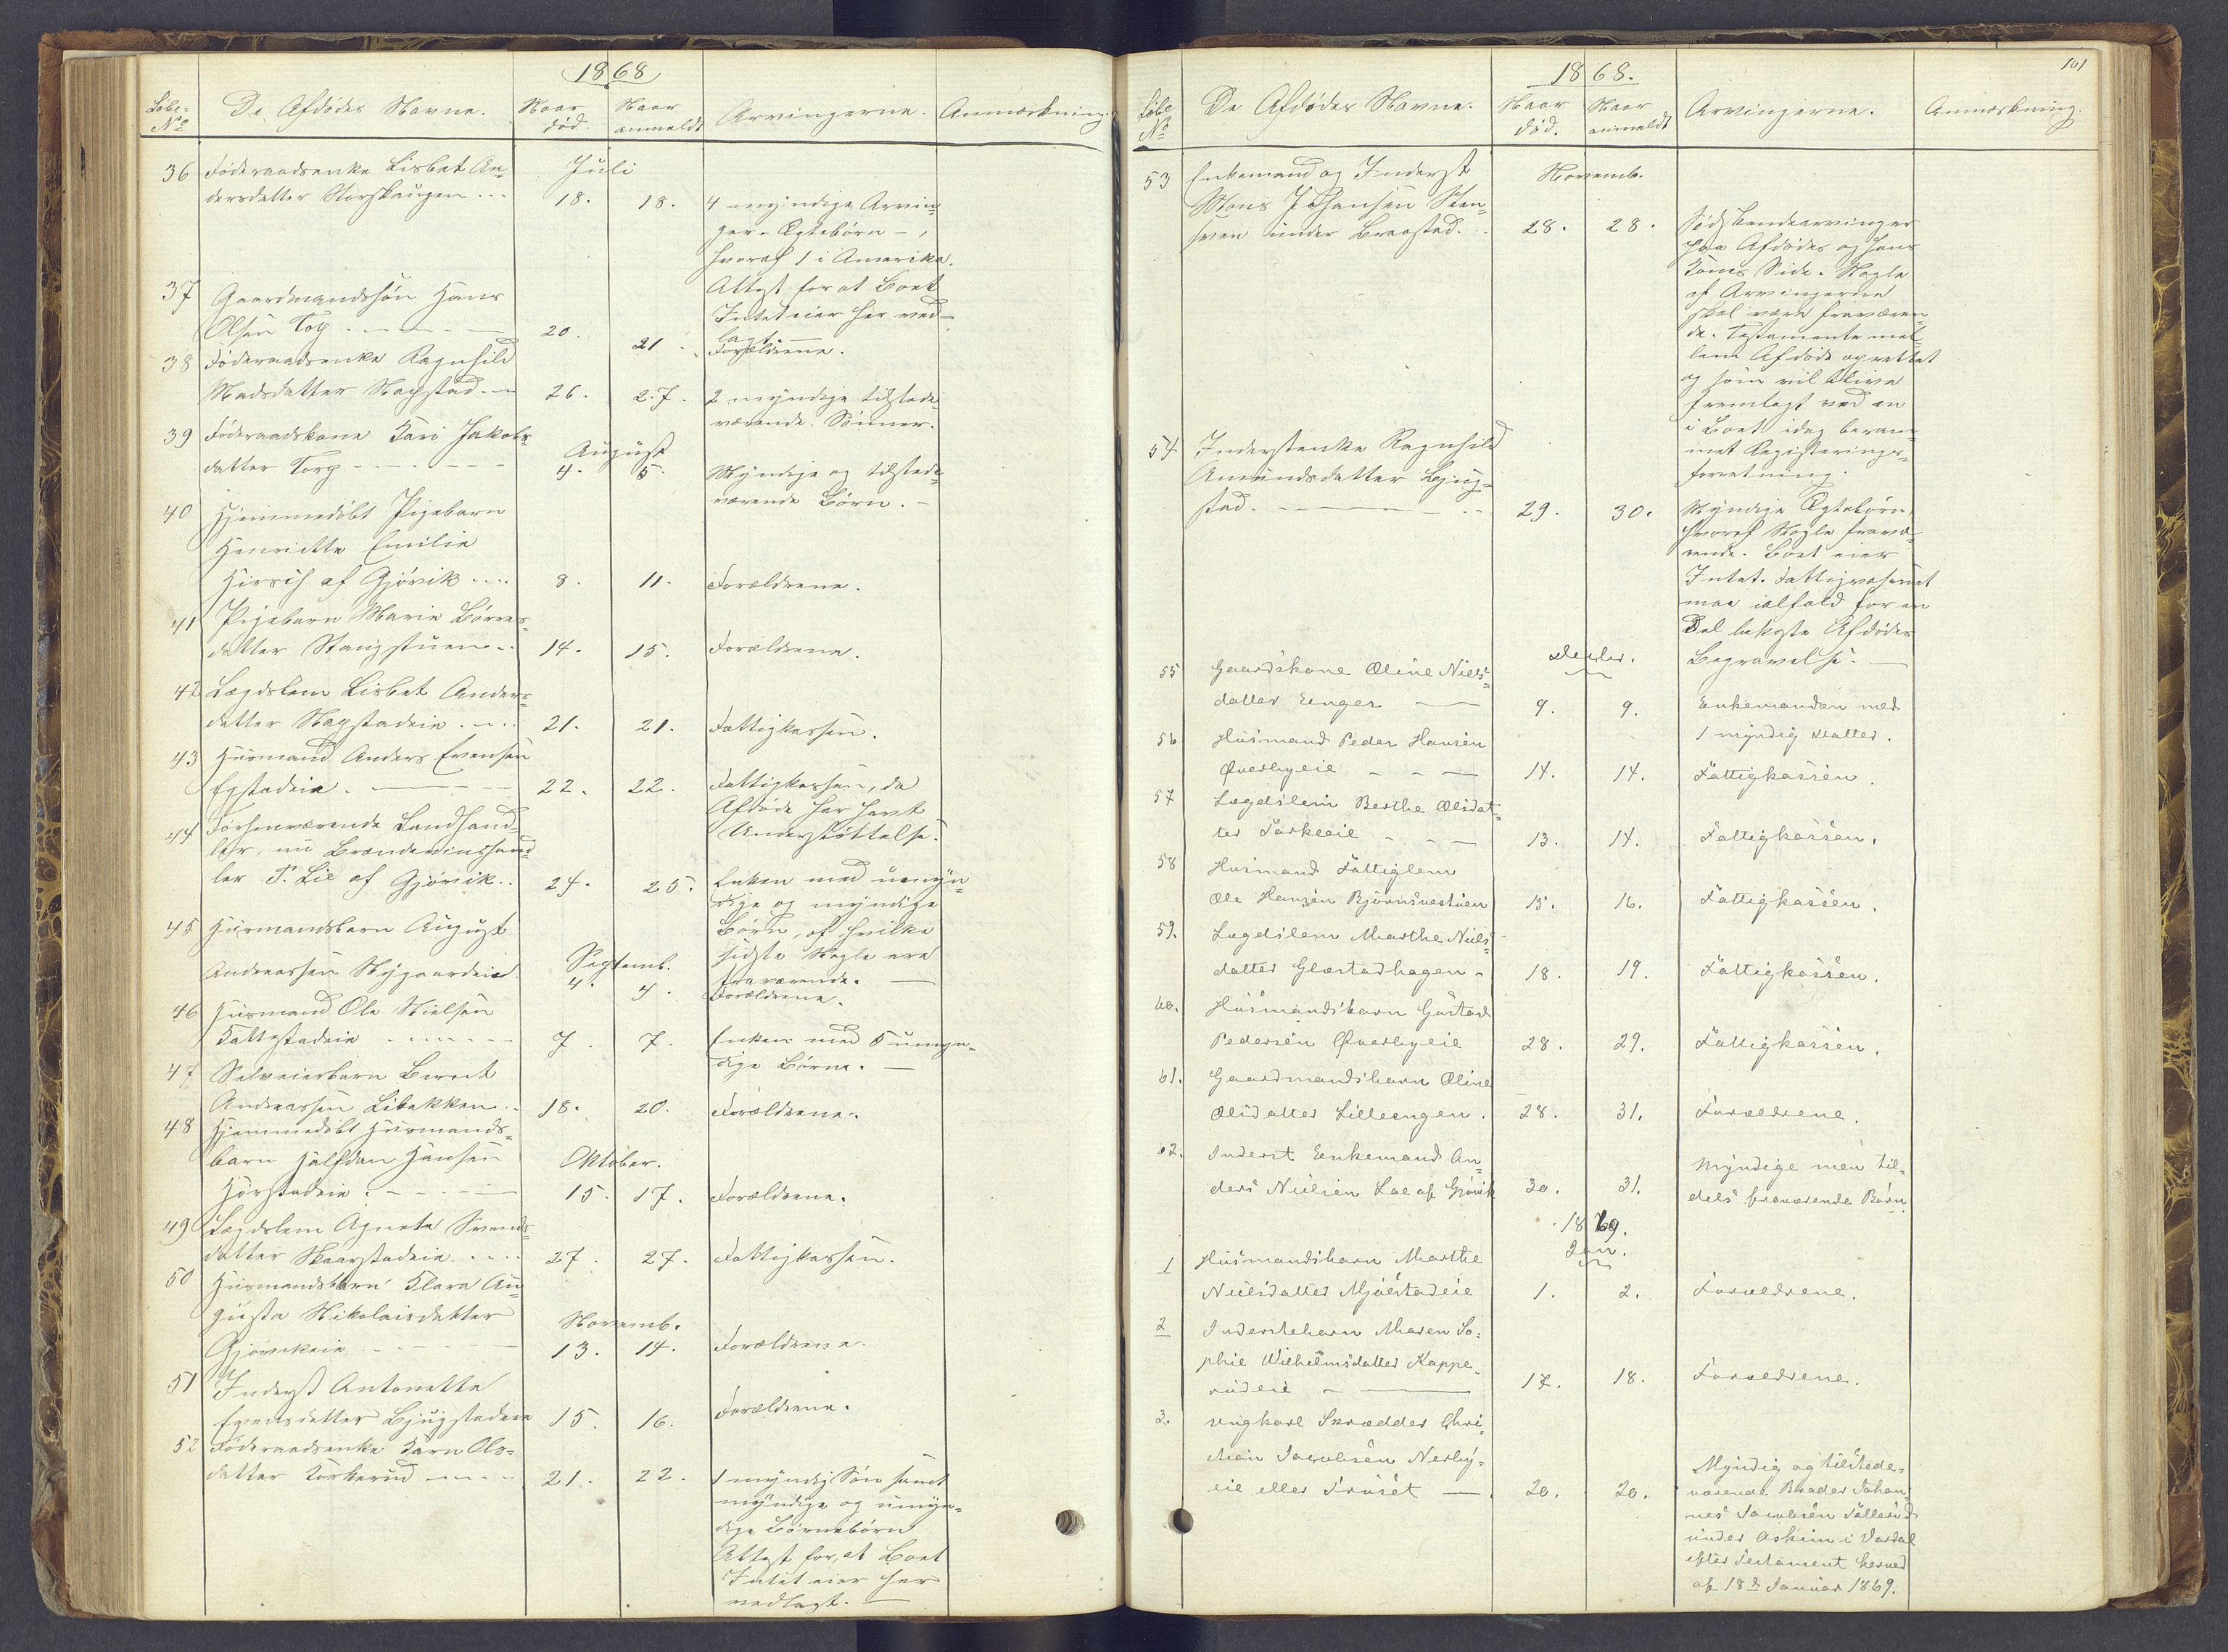 1868
Løbe-
No
De Afdødes Navne.
Naar
død.
Naar
anmeldt
Arvingerne.
Anmærkning.
36 Føderaadsenke Lisbet An-
dersdatter Norskaugen ...
Juli
18. 18. 4 myndige Arvin-
ger - Ægtebørn -,
hvoraf 1 i Amerika.
Attest for at Boet
Intet eier her ved-
lagt. —
37 Gaardmandssøn Hans
Olsen Torp . - - - 20. 21. Forældrene.
38 Føderaadsenke Ragnhild
Madsdatter Nagstad. - 26. 27. 2 myndige tilstede-
værende Sønner.
39 Føderaadskone Kari Jakobs-
datter Torp - - - -
August
4. 5. Myndige og tilstede-
værende Børn. -
40 Hjemmedøbt Pigebarn
Henriette Emilie
Hirsch af Gjøvik .... 8. 11. Forældrene.
41 Pigebarn Marie Børres-
datter Stangstuen .. 14. 15. Forældrene.
42 Lægdslem Lisbet Anders-
datter Nagstadeie .... 21. 21. Fattigkassen.
43 Husmand Anders Evensen
Egstadeie. — - - 22. 22. Fattigkassen, da
Afdøde har havt
Understøttelse.
44 Forhenværende Landhand-
ler, nu Brændevinshand-
ler P. Lie af Gjøvik.. 24. 25. Enken med umyn-
dige og myndige
Børn, af hvilke
sidste Nogle ere
fraværende. —
45 Husmandsbarn August
Andreassen Nygaardeie.
Septemb.
4. 4. Forældrene.
46 Husmand Ole Nielsen
Kaltstadeie - - - - 7. 7. Enken med 5 umyn-
dige Børn. —
47 Selveierbarn Berent
Andreassen Libakken .. 18. 20. Forældrene.
48 Hjemmedøbt Husmands-
barn Halfdan Hansen
Hørstadeie. - - - -
Oktober.
15. 17. Forældrene.
49 Lægdslem Agnete Svends-
datter Skaarstadeie .... 27. 27. Fattigkassen.
50 Husmandsbarn Klara Au-
gusta Nikolaisdatter
Gjøvikeie - - - -
Novemb.
13. 14. Forældrene.
51 Inderst Antonette
Evensdatter Bjugstadeie 15. 16. Forældrene.
52 Føderaadsenke Karn Ols-
datter Korkerud - - - 21. 22. 1 myndig Søn samt
myndige og umyn-
dige Børnebørn
Attest for, at Boet
Intet eier her
vedlagt. —
101
1868.
Løbe
No
De Afdødes Navne.
Naar
død.
Naar
anmeldt
Arvingerne.
Anmærkning.
53 Enkemand og Inderst
Mons Johansen Sten-
sven under Braastad. ..
Novemb.
28. 28. Sødskendearvinger
paa Afdødes og hans
Kones Side. Nogle
af Arvingerne
skal være fraværen-
de. Testamente mel-
lem Afdøde oprettet
og som vil blive
fremlagt ved en
i Boet idag beram-
met Registrerings-
forretning.
54 Inderstenke Ragnhild
Amundsdatter Bjug-
stad. - - - - - 29. 30. Myndige Ægtebørn,
hvoraf Nogle fravæ-
rende. Boet eier
Intet. Fattigvæsenet
maa ialfald for en
Del bekoste Afdødes
Begravelse. —
Decbr.
55 Gaardskone Oline Niels-
datter Enger — 9. 9. Enkemanden med
1 myndig Datter.
56 Husmand Peder Hansen
Øverbyeie - - — 14. 14. Fattigkassen.
57 Lægdslem Berthe Olsdat-
ter Parkeeie - - - 13. 14. Fattigkassen.
58 Husmand Fattiglem
Ole Hansen Bjørnsvestuen 15. 16. Fattigkassen.
59. Lægdslem Marthe Niels-
datter Glæstadhagen - 18. 19. Fattigkassen.
60. Husmandsbarn Gustav
Pedersen Øverbyeie 28. 29. Fattigkassen.
61. Gaardmandsbarn Oline
Olsdatter Lilleengen. 28. 31. Forældrene.
62. Inderst Enkemand An-
ders Nielsen Lae af Gjøvik 30. 31. Myndige men til-
dels fraværende Børn.
1869.
Jan.
1 Husmandsbarn Marthe
Nielsdatter Mjølstadeie 1. 2. Forældrene.
2 Inderstebarn Maren So-
phie Wilhelmsdatter Kappe-
rudeie - — 17. 18. Forældrene.
3. Ungkarl Skrædder Chri-
stian Jacobsen Nerby-
eie eller Prøset — 20. 20. Myndig og tilstede-
værende Broder Johan-
nes Jacobsen Sollerud
under Askim i Vardal
efter Testament herved
af 18de Januar 1869.